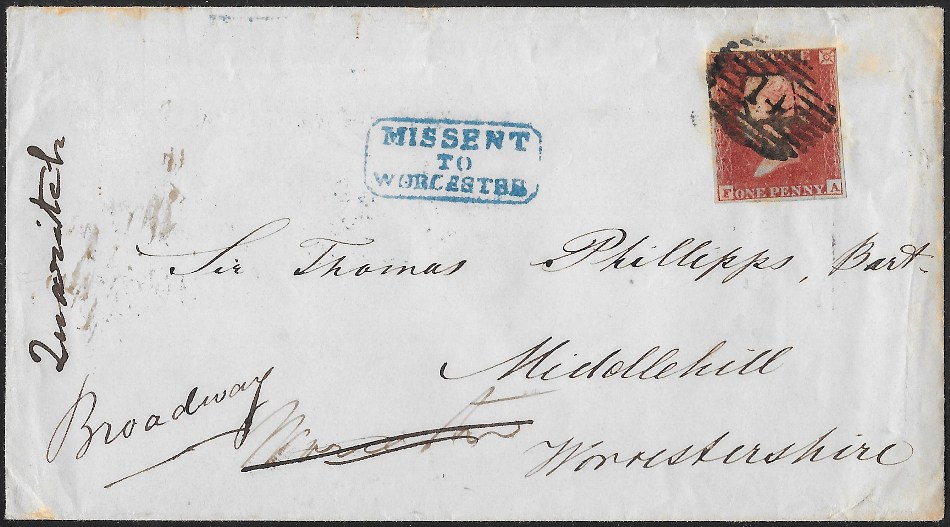 MISSENT
TO
WORCESTER
F ONE PENNY A
Quaritch
Sir Thomas Phillipps, Bart-
Middlehill
Broadway
Worcestershire